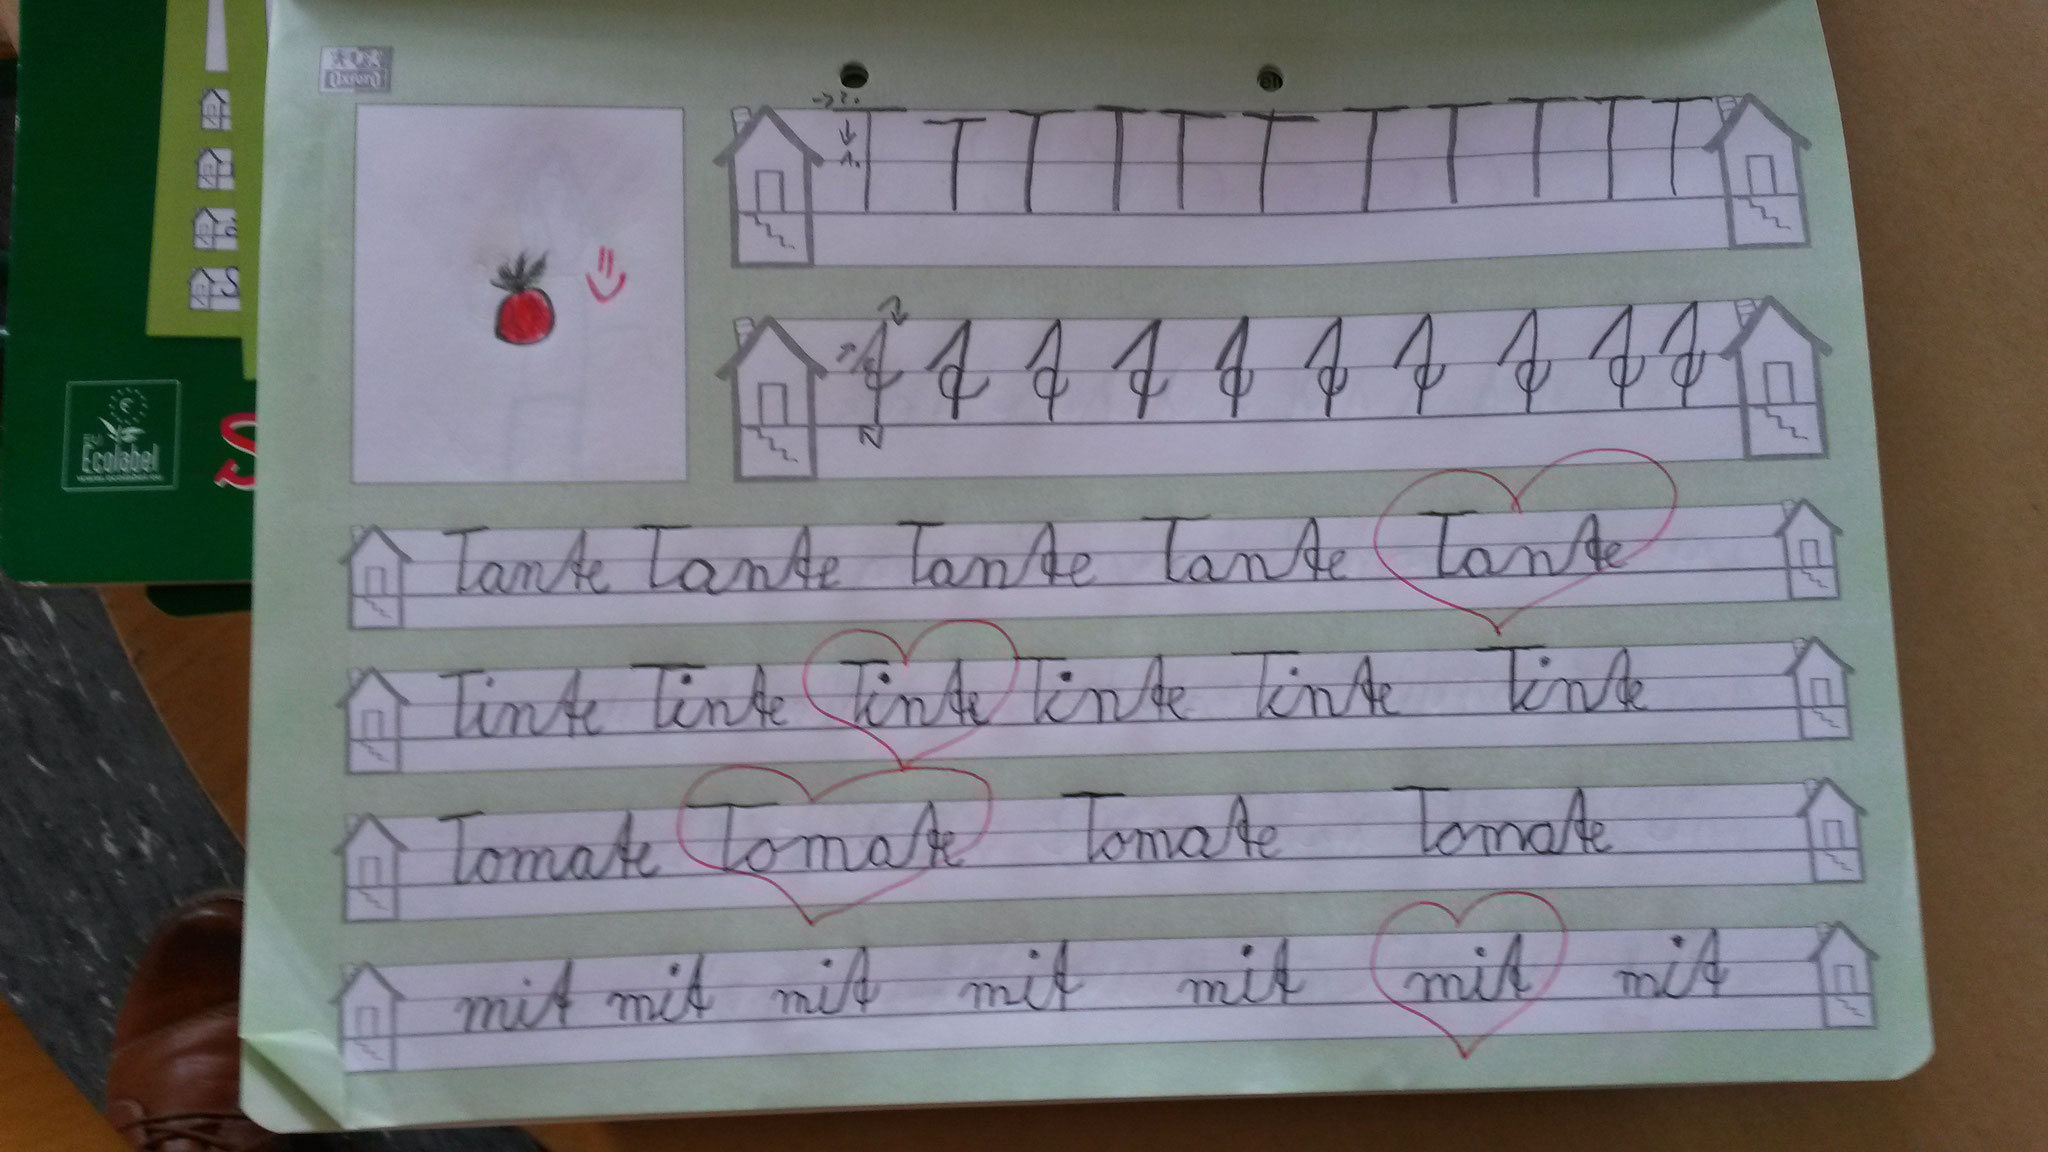 Oxford
→ 2.
↓
1.
T T T T T T T T T T T
t t t t t t t t t t
Tante Tante Tante Tante Tante
Tinte Tinte Tinte Tinte Tinte Tinte
Tomate Tomate Tomate Tomate
mit mit mit mit mit mit mit
EU
Ecolabel
S